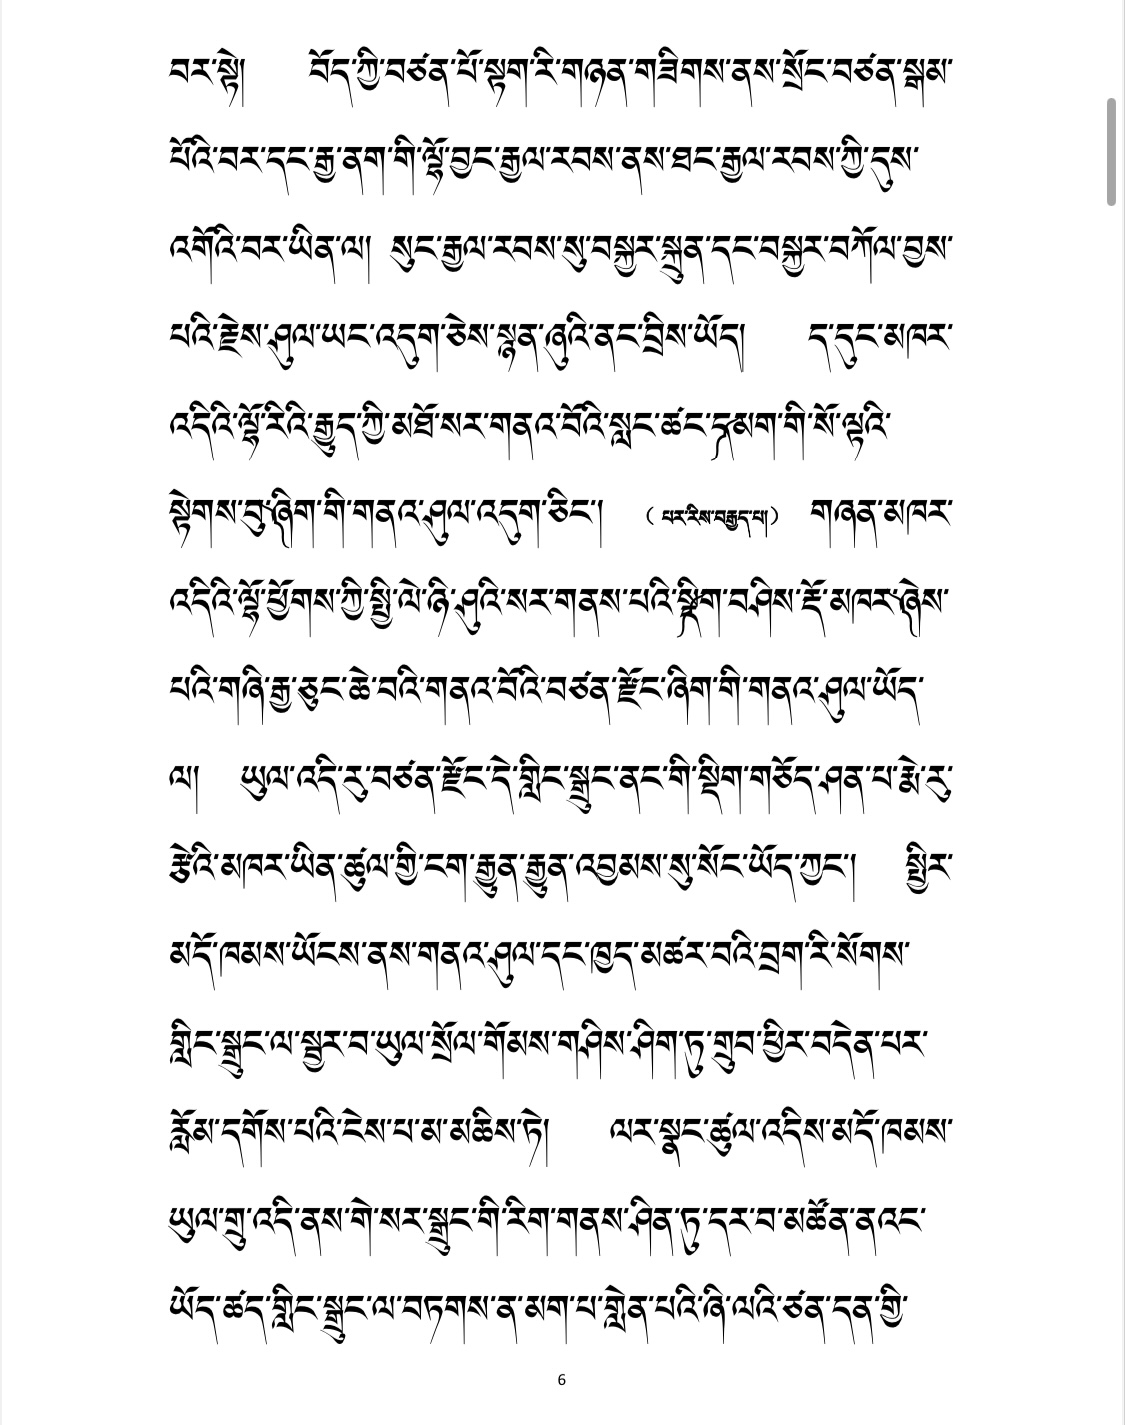 བར་སྟེ།    བོད་ཀྱི་བཙན་པོ་སྟག་རི་གཉན་གཟིགས་ནས་སྲོང་བཙན་སྒམ་
པོའི་བར་དང་རྒྱ་ནག་གི་ལྷོ་བྱང་རྒྱལ་རབས་ནས་ཐང་རྒྱལ་རབས་ཀྱི་དུས་
འགོའི་བར་ཡིན་ལ། སུང་རྒྱལ་རབས་སུ་བསྐྱར་སྐྲུན་དང་བསྐྱར་བཀོལ་བྱས་
པའི་རྗེས་ཤུལ་ཡང་འདུག་ཅེས་སྙན་ཞུའི་ནང་བྲིས་ཡོད།    ད་དུང་མཁར་
འདིའི་ལྷོ་རིའི་རྒྱུད་ཀྱི་མཐོ་སར་གནའ་བོའི་སླང་ཚང་དམག་གི་སོ་ལྟའི་
སྟེགས་བུ་ཞིག་གི་གནའ་ཤུལ་འདུག་ཅིང་།    (པར་རིས་བརྒྱད་པ།)    གཞན་མཁར་
འདིའི་ལྷོ་ཕྱོགས་ཀྱི་སྤྱི་ལེ་ཉི་ཤུའི་སར་གནས་པའི་སྟིག་བ་ཤིས་རྡོ་མཁར་ཞེས་
པའི་གཞི་རྒྱ་ཅུང་ཆེ་བའི་གནའ་བོའི་བཙན་རྫོང་ཞིག་གི་གནའ་ཤུལ་ཡོད་
ལ།    ཡུལ་འདི་རུ་བཙན་རྫོང་དེ་གླིང་སྒྲུང་ནང་གི་སྡིག་གཅོད་ཤན་པ་རྨེ་རུ་
རྩེའི་མཁར་ཡིན་ཚུལ་གྱི་ངག་རྒྱུན་རྒྱུན་འབྱམས་སུ་སོང་ཡོད་ཀྱང་།    སྤྱིར་
མདོ་ཁམས་ཡོངས་ནས་གནའ་ཤུལ་དང་ཁྱད་མཚར་བའི་བྲག་རི་སོགས་
གླིང་སྒྲུང་ལ་སྦྱར་བ་ཡུལ་སྲོལ་གོམས་གཤིས་ཤིག་ཏུ་གྲུབ་ཕྱིར་བདེན་པར་
རློམ་དགོས་པའི་ངེས་པ་མ་མཆིས་ཏེ།    ལར་སྣང་ཚུལ་འདིས་མདོ་ཁམས་
ཡུལ་གྲུ་འདི་ནས་གེ་སར་སྒྲུང་གི་རིག་གནས་ཤིན་ཏུ་དར་བ་མཚོན་ནའང་
ཡོད་ཚད་གླིང་སྒྲུང་ལ་བཏགས་ན་མག་པ་གླེན་པའི་ཞི་ལའི་ཙན་དན་གྱི་
6